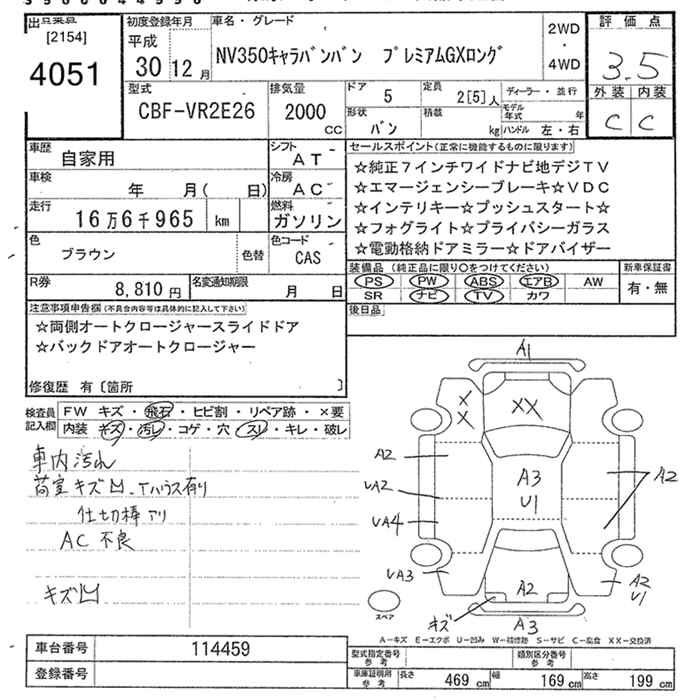 出品票番
[2154]
4051
初度登録年月
平成
30年12月
車名・グレード
NV350キャラバンバン プレミアムGXロング
2WD
・
4WD
評価点
3.5
外装 内装
C C
型式
CBF-VR2E26
排気量
2000
CC
ドア
5
定員
2[5]人
形状
バン
積載
kg
ディーラー・並行
モデル年式 年
ハンドル 左・右
車歴
自家用
シフト
AT
車検
年 月( 日)
冷房
AC
走行
16万6千965 km
燃料
ガソリン
色
ブラウン
色替
色コード
CAS
R券
8,810円
名変通知期限
月 日
セールスポイント(正常に機能するものに限ります)
☆純正7インチワイドナビ地デジTV
☆エマージェンシーブレーキ☆VDC
☆インテリキー☆プッシュスタート☆
☆フォグライト☆プライバシーガラス
☆電動格納ドアミラー☆ドアバイザー
装備品(純正品に限り○をつけてください)
PS PW ABS エアB AW
SR ナビ TV カワ
新車保証書
有・無
後日品
注意事項申告欄(不具合内容等は具体的に記入して下さい)
☆両側オートクロージャースライドドア
☆バックドアオートクロージャー
修復歴 有〔箇所 〕
検査員記入欄
FW キズ・飛石・ヒビ割・リペア跡・×要
内装 キズ・汚レ・コゲ・穴・スリ・キレ・破レ
車内汚れ
荷室キズ凹、Tハウス有り
仕切棒アリ
AC 不良
キズ凹
A1
X
X
XX
A2
UA2
UA4
UA3
A3
U1
A2
A2
U1
A2
キズ
A3
スペア
A-キズ E-エクボ U-凹み W-補修跡 S-サビ C-腐食 XX-交換済
車台番号
114459
登録番号
型式指定番号
参考
類別区分番号
参考
車庫証明用
参考
長さ 469 cm 幅 169 cm 高さ 199 cm